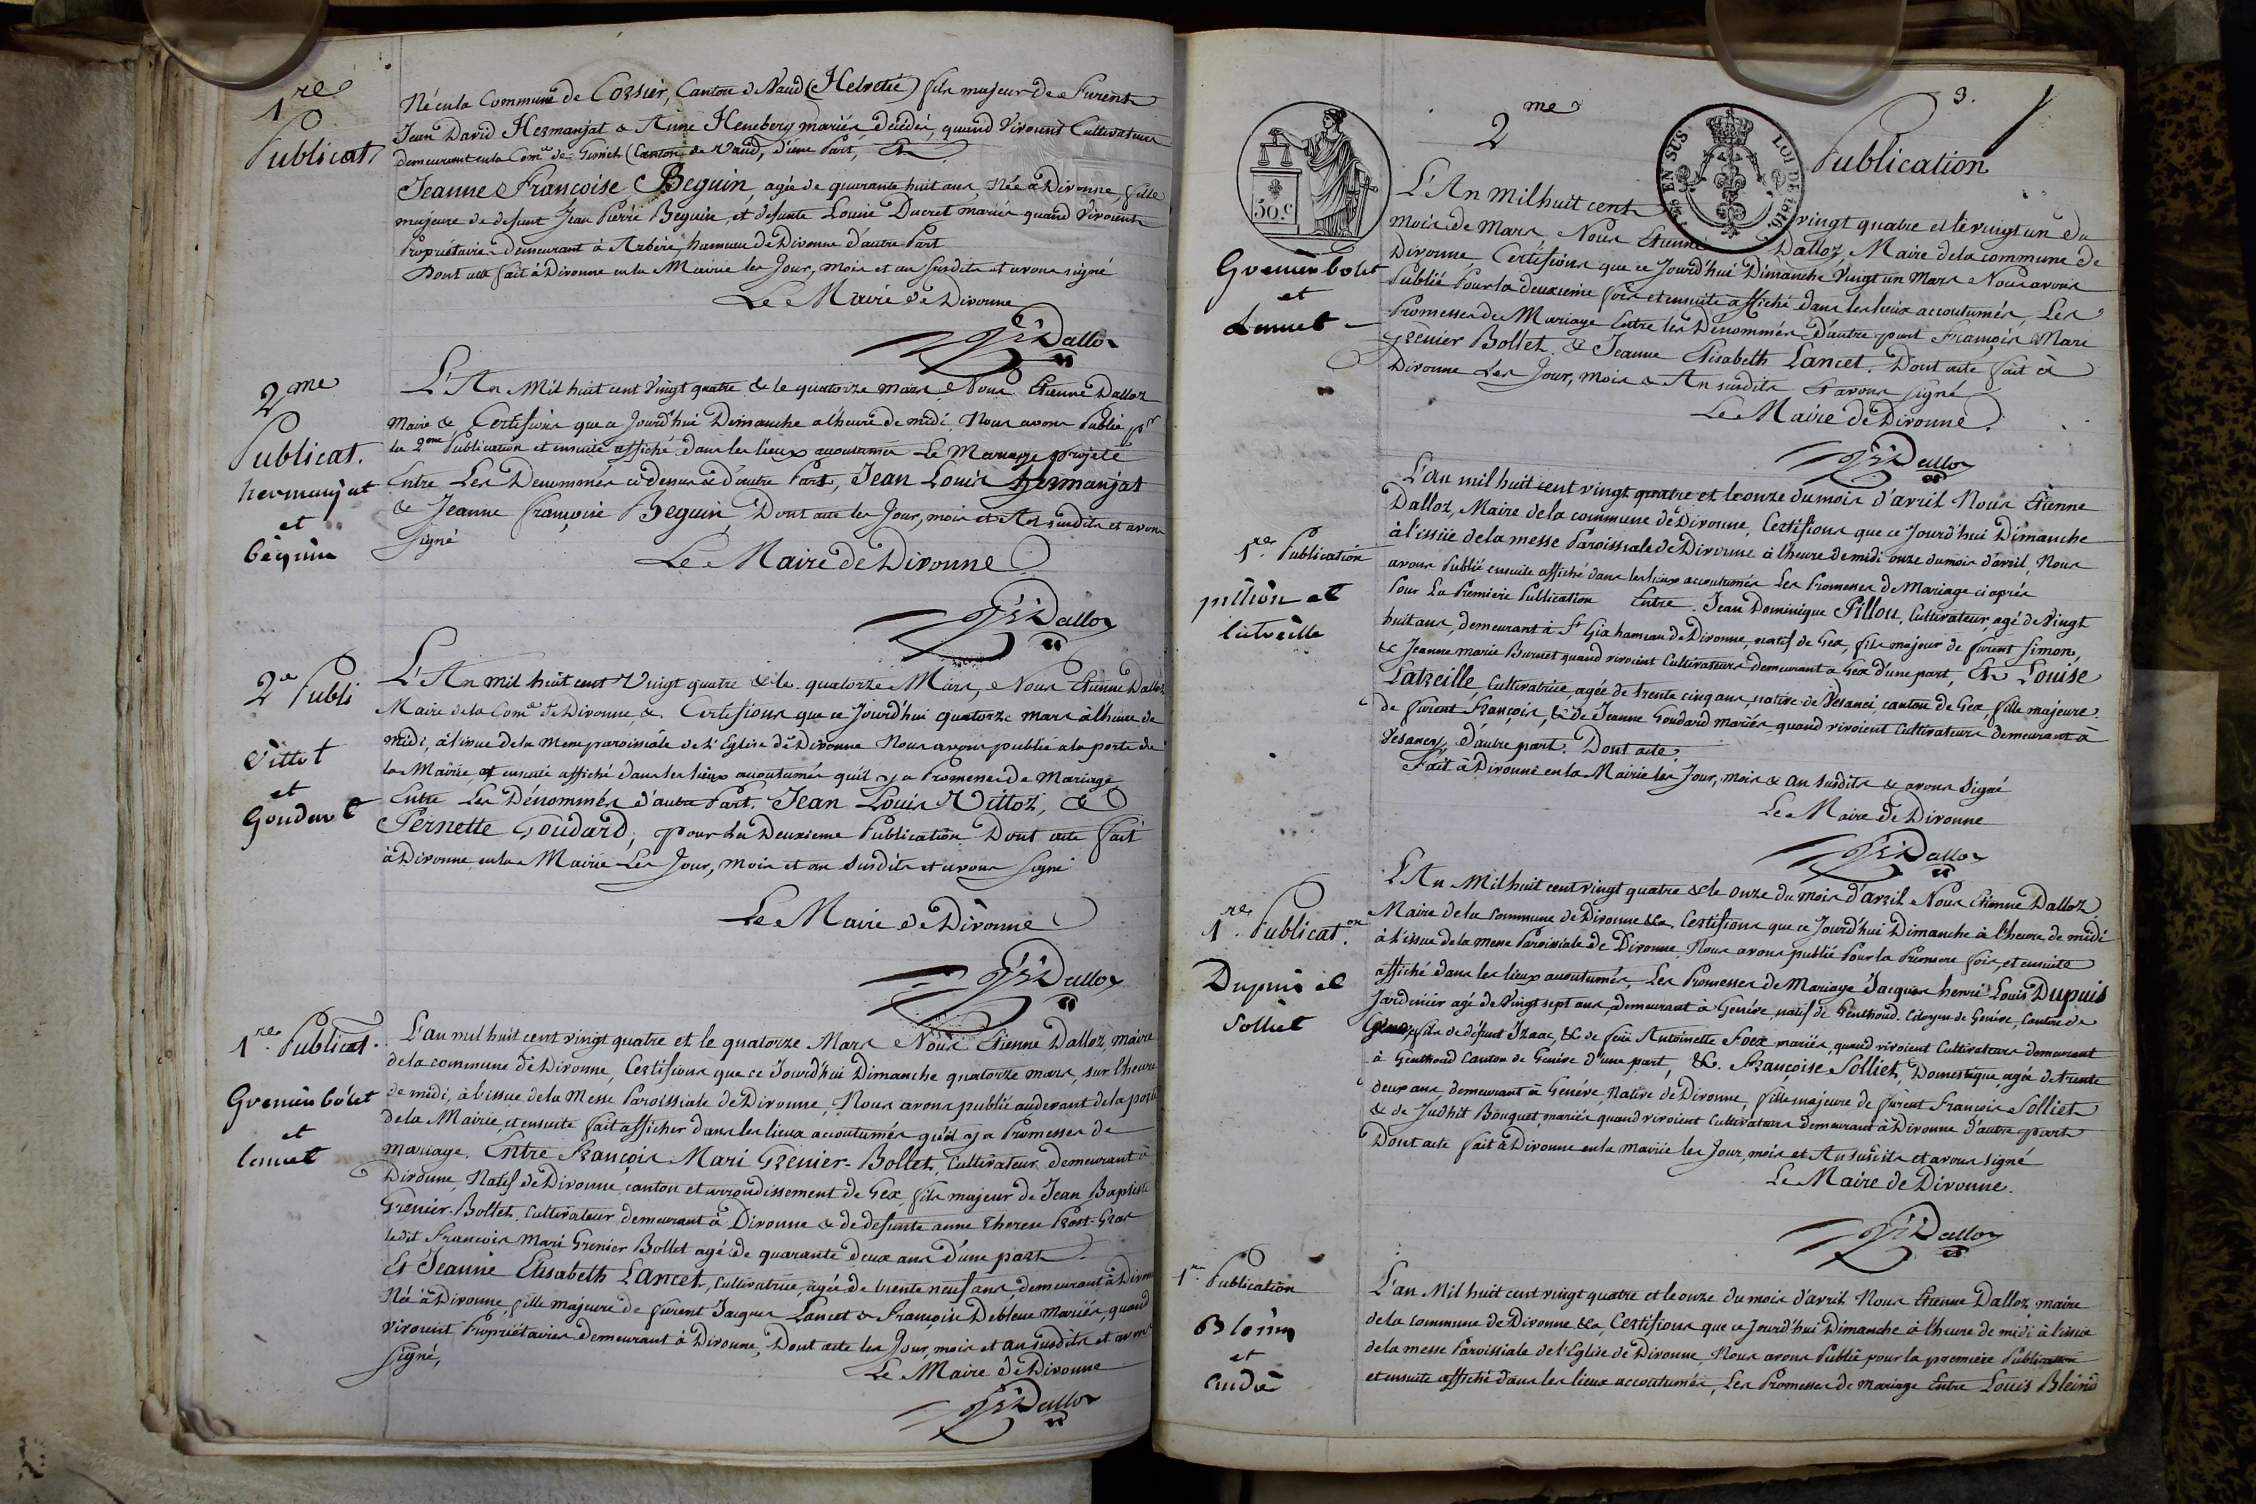 1re
Publicat
Né en la Commune de Corsier, Canton de Vaud (Helvetie) fils majeur de furent
Jean David Hermanjat & Anne Heneberg mariés décédés, quand vivoient Cultivateurs
demeurant en la Come de Gimel (Canton de Vaud), d'une Part, Et
Jeanne Françoise Beguin, agée de quarante huit ans, Née à Divonne, fille
majeure de defunt Jean Pierre Beguin, et defunte Louise Ducret mariés quand vivoient
Propriétaires demeurant à Arbère, hameau de Divonne d'autre Part
Dont acte fait à Divonne en la Mairie les Jour, mois et an susdits et avons signé
Le Maire de Divonne
Dalloz
2me
Publicat.
hermanjat
et
béguin
L'An Mil huit cent vingt quatre & le quatorze mars Nous Etienne Dalloz
Maire & Certifions que ce Jourd'hui Dimanche a lheure de midi. Nous avons Publié pr
la 2me Publication et ensuite affiché dans les lieux accoutumés Le Mariage projeté
Entre Les Denommés ci dessus & d'autre Part, Jean Louis Hermanjat
& Jeanne françoise Beguin, Dont acte les Jour, mois et An susdits et avons
signé
Le Maire de Divonne
Dalloz
2e Publi
Vittot
et
Goudard
L'An mil huit cent Vingt quatre & le quatorze Mars, Nous Etienne Dalloz
Maire de la Come de Divonne, & Certifions que ce Jourd'hui quatorze mars à l'heure de
midi, à l'issue de la Messe paroissiale de l'Eglise de Divonne Nous avons publié a la porte de
la Mairie, et ensuite affiché dans les lieux accoutumés qu'il y a Promesses de Mariage
Entre Les Dénommés d'autre Part. Jean Louis Vittoz, &
Pernette Goudard; pour La Deuxieme Publication Dont acte fait
à Divonne en la Mairie Les Jour, mois et an susdits et avons signé
Le Maire de Divonne
Dalloz
1re Publicat.
Grenier bolet
et
lancet
L'an mil huit cent vingt quatre et le quatorze Mars Nous Etienne Dalloz, maire
de la commune de Divonne, Certifions que ce Jourd'hui Dimanche quatorze mars, sur l'heure
de midi, à l'issue de la Messe Paroissiale de Divonne, Nous avons publié au devant de la porte
de la Mairie, et ensuite fait afficher dans les lieux accoutumés qu'il y a Promesses de
mariage. Entre François Mari Grenier-Bollet, Cultivateur, demeurant à
Divonne, Natif de Divonne, canton et arrondissement de Gex, fils majeur de Jean Baptiste
Grenier-Bollet, Cultivateur, demeurant à Divonne & de defunte anne Therese
ledit Francois Mari Grenier Bollet agé de quarante deux ans d'une part
Et Jeanne Elisabeth Lancet, cultivatrice, agée de trente neuf ans, demeurant à Divonne
Née à Divonne, fille majeure de furent Jacques Lancet & Françoise Debleue mariés, quand
vivoient Propriétaires demeurant à Divonne, Dont acte les Jour, mois et an susdits et avons
signé,
Le Maire de Divonne
Dalloz
3.
2me Publication
50 c
EN SUS
LOI DE 1816
Grenier bolet
et
Lancet
L'An Mil huit cent vingt quatre et le vingt un du
mois de Mars Nous Etienne Dalloz, Maire de la commune de
Divonne Certifions que ce Jourd'hui Dimanche Vingt un Mars Nous avons
Publié Pour la deuxieme fois et ensuite affiché dans les lieux accoutumés, Les
Promesses de Mariage Entre les Dénommés d'autre part François Mari
Grenier Bollet & Jeanne Elisabeth Lancet. Dont acte fait à
Divonne Les Jour, mois & An susdits et avons signé
Le Maire de Divonne.
Dalloz
1re Publication
pillon et
latreille
L'an mil huit cent vingt quatre et le onze du mois d'avril Nous Etienne
Dalloz, Maire de la commune de Divonne, Certifions que ce Jourd'hui Dimanche
à l'issüe de la messe Paroissiale de Divonne à lheure de midi onze du mois d'avril, Nous
avons Publié ensuite affiché dans les lieux accoutumés Les Promesses de Mariage ci après
Pour La Premiere Publication Entre Jean Dominique Pillon, Cultivateur, agé de Vingt
huit ans, demeurant à St Gix hameau de Divonne, natif de Gex, fils majeur de furent Simon,
& Jeanne marie Burnet quand vivoient Cultivateurs demeurant a Gex d'une part, Et Louise
Latreille, Cultivatrice, agée de trente cinq ans, native de Vesanci, canton de Gex, fille majeure
de furent François, & de Jeanne Goudard mariés, quand vivoient Cultivateurs demeurant à
Vesancy, d'autre part. Dont acte
Fait à Divonne en la Mairie les Jour, mois & an susdits & avons signé
Le Maire de Divonne
Dalloz
1re Publicat.on
Dupuis et
Solliet
L'An Mil huit cent vingt quatre & le onze du mois d'avril Nous Etienne Dalloz
Maire de la commune de Divonne &a Certifions que ce Jourd'hui Dimanche à lheure de midi
à l'issue de la messe Paroissiale de Divonne. Nous avons publié Pour la Premiere fois, et ensuite
affiché dans les lieux accoutumés Les Promesses de Mariage Jacques henri Louis Dupuis
Jardinier agé de Vingt sept ans, demeurant à Genéve, natif de Genthoud, Citoyen de Genéve, Canton de
Genève, fils de défunt Izaac, & de feüe Antoinette Foex mariés, quand vivoient Cultivateurs demeurant
à Genthoud Canton de Genève d'une part, &. Françoise Solliet, Domestique, agée de trente
deux ans, demeurant à Genéve, Native de Divonne, fille majeure de furent François Solliet
& de Judhit Bouquet, mariés, quand vivoient Cultivateurs demeurant à Divonne d'autre part
Dont acte fait à Divonne en la mairie les Jour, mois et An susdits et avons signé
Le Maire de Divonne.
Dalloz
1re Publication
Blein
et
L'an Mil huit cent vingt quatre et le onze du mois d'avril Nous Etienne Dalloz, maire
de la commune de Divonne &a, Certifions que ce Jourd'hui Dimanche à lheure de midi à l'issue
de la messe Paroissiale de l'Eglise de Divonne, Nous avons Publié pour la premiere Publication
et ensuite affiché dans les lieux accoutumés, Les Promesses de mariage Entre Louis Blein